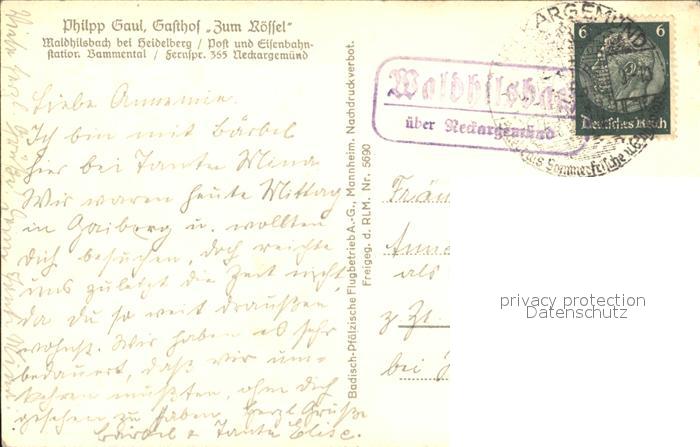 Philpp Gaul, Gasthof „Zum Rössel"
Waldhilsbach bei Heidelberg / Post und Eisenbahn-
station Bammental / Fernspr. 355 Neckargemünd
Liebe Annemie.
Ich bin mit Bärbel
hier bei Tante Mina
Wir waren heute Mittag
in Gaiberg u. wollten
dich besuchen, doch reichte
uns zuletzt die Zeit nicht,
da du so weit draußen
wohnst. Wir haben es sehr
bedauert, daß wir um-
kehren mußten, ohne dich
gesehen zu haben. Herzl Grüße
Bärbel u Tante Elise.
Viele herzl Grüße
Badisch-Pfälzische Flugbetrieb A.-G., Mannheim. Nachdruckverbot.
Freigeg. d. RLM. Nr. 5690
Waldhilsbach
über Neckargemünd
KARGEMÜND
Sommerfrische
6 6
Deutsches Reich
Fräu
Anne
als
z. Zt.
bei
privacy protection
Datenschutz